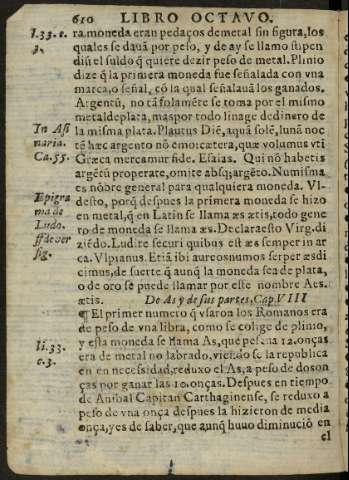 610 LIBRO OCTAVO.
l.33.c.
3.
ra.moneda eran pedaços de metal sin figura, los
quales se dauã por peso, y de ay se llamo stipen
diũ el suldo q̃ quiere dezir peso de metal. Plinio
dize q̃ la primera moneda fue señalada con vna
marca, o señal, cõ la qual señalauã los ganados.
Argentũ, no tã solamẽte se toma por el mismo
metal de plata, mas por todo linage de dinero de
In Asi
naria.
la misma plata. Plautus Diẽ, aquã solẽ, lunã noc
tẽ hæc argento nõ emo: cætera, quæ volumus vti
Ca.55.
Græca mercamur fide. Esaias. Qui nõ habetis
argẽtũ properate, omite absq; argẽto. Numisma
es nõbre general para qualquiera moneda. Vl-
Epigra
ma de
Ludo.
ff de ver
sig.
desto, porq̃ despues la primera moneda se hizo
en metal, q̃ en Latin se llama æs æris, todo gene
ro de moneda se llama æs. Declara esto Virg. di
ziẽdo. Ludite securi quibus est æs semper in ar
ca. Vlpianus. Etiã ibi aureos numos ser per æs di
cimus, de suerte q̃ aunq̃ la moneda sea de plata,
o de oro se puede llamar por este nombre Aes.
ætis. De As y de sus partes, Cap. VIII
¶ El primer numero q̃ vsaron los Romanos era
de peso de vna libra, como se colige de plinio,
li.33.
c.3.
y esta moneda se llama As, que pesaua 12. onças
era de metal no labrado, viendose la republica
en en necessidad, reduxo el As, a peso de dos on
ças por ganar las 10. onças. Despues en tiempo
de Anibal Capitan Carthaginense, se reduxo a
peso de vna onça despues la hizieron de media
onça, yes de saber, que aunq̃ huuo diminuciõ en
el